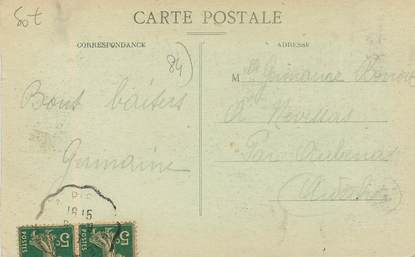 80t
CARTE POSTALE
CORRESPONDANCE
ADRESSE
84
M lle Germaine
Bons baisers
A
Germaine
Par Aubenas
Ardèche
18 15
5c 5c
POSTES POSTES